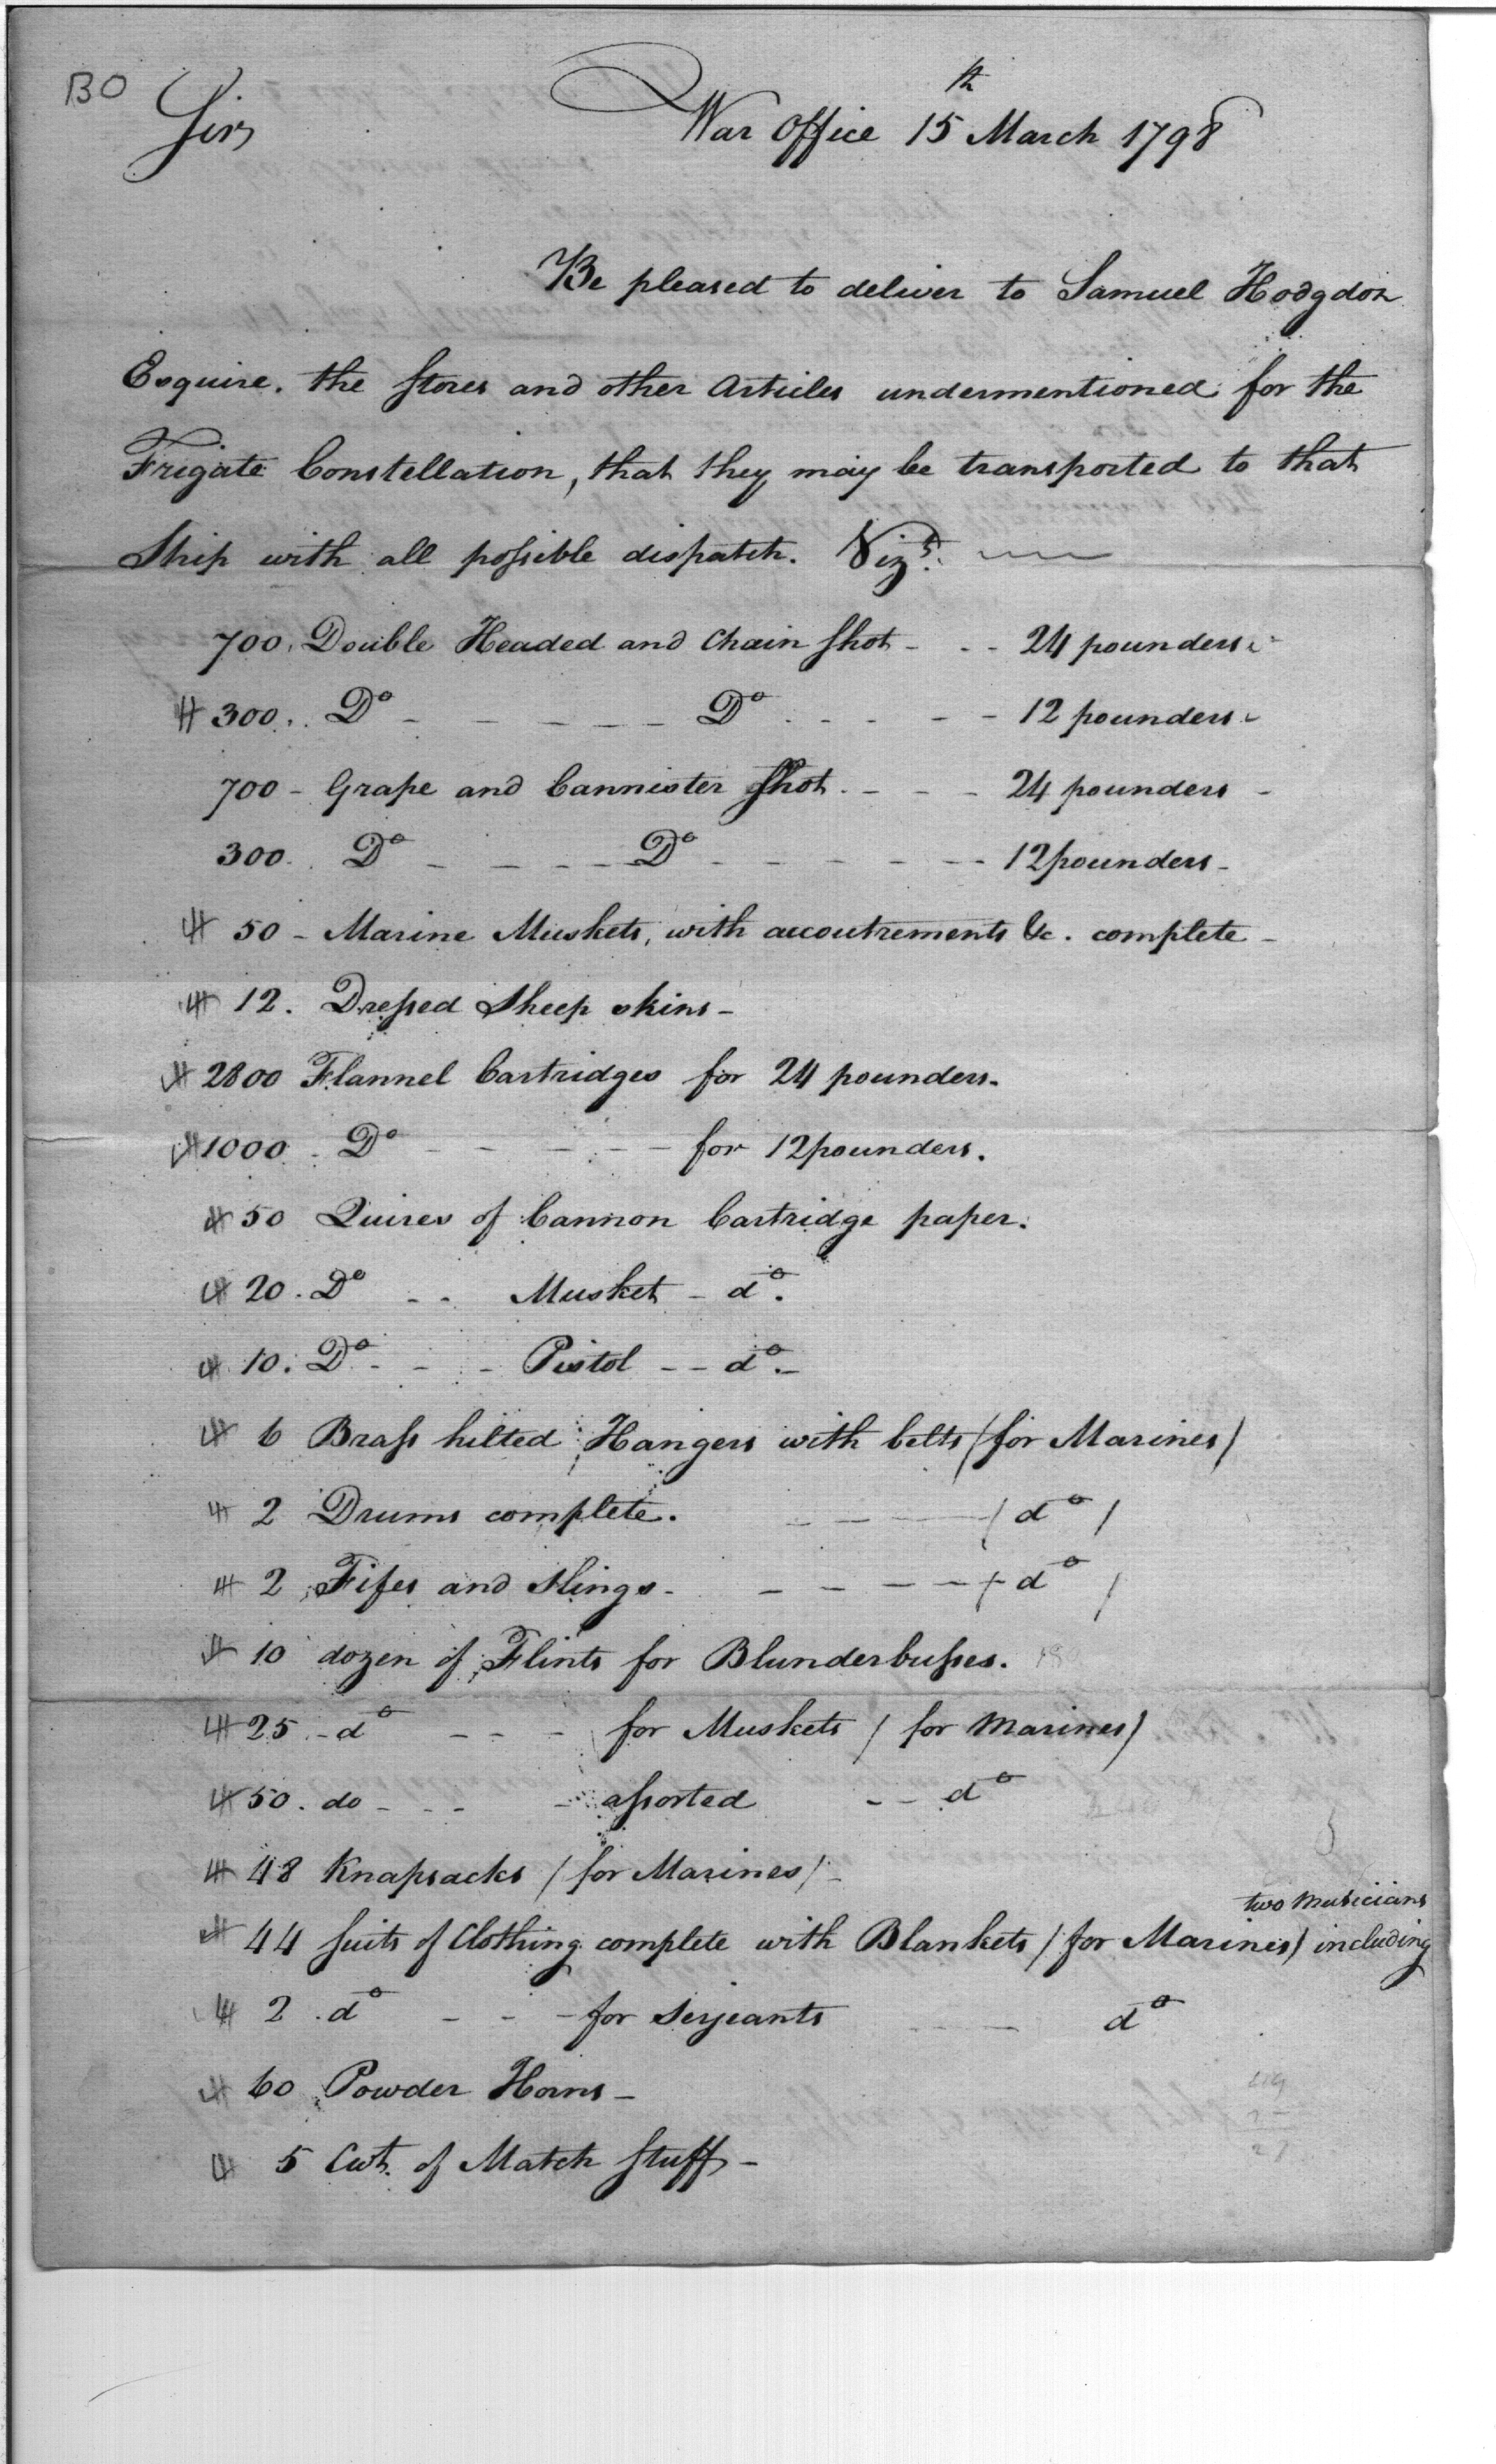 BO
Sir,
War Office 15th March 1798
Be pleased to deliver to Samuel Hodgdon
Esquire. the Stores and other Articles undermentioned for the
Frigate Constellation, that they may be transported to that
Ship with all possible dispatch. Vizt.
700. Double Headed and Chain Shot - - - 24 pounders
# 300. Do - - - - - Do - - - - 12 pounders
700 - Grape and Cannister Shot. - - - 24 pounders -
300. Do - - - - Do - - - - - - 12 pounders -
# 50 - Marine Muskets, with accoutrements &c. complete -
# 12. Dressed Sheep skins -
# 2800 Flannel Cartridges for 24 pounders.
# 1000 - Do - - - - - for 12 pounders.
# 50 Quires of Cannon Cartridge paper.
# 20. Do - - Musket - do.
# 10. Do - - - Pistol - - do. -
# 6 Brass hilted Hangers with belts / for Marines /
# 2 Drums complete. - - - / do /
# 2 Fifes and Slings - - - - - / do /
# 10 dozen of Flints for Blunderbusses.
# 25 - do - - - for Muskets / for Marines /
# 50. do - - - - assorted - - do
# 48 Knapsacks / for Marines / -
two Musicians
# 44 suits of Clothing complete with Blankets / for Marines / including
# 2. do - - - for Serjeants - - do
# 60 Powder Horns -
# 5 Cwt. of Match Stuff -